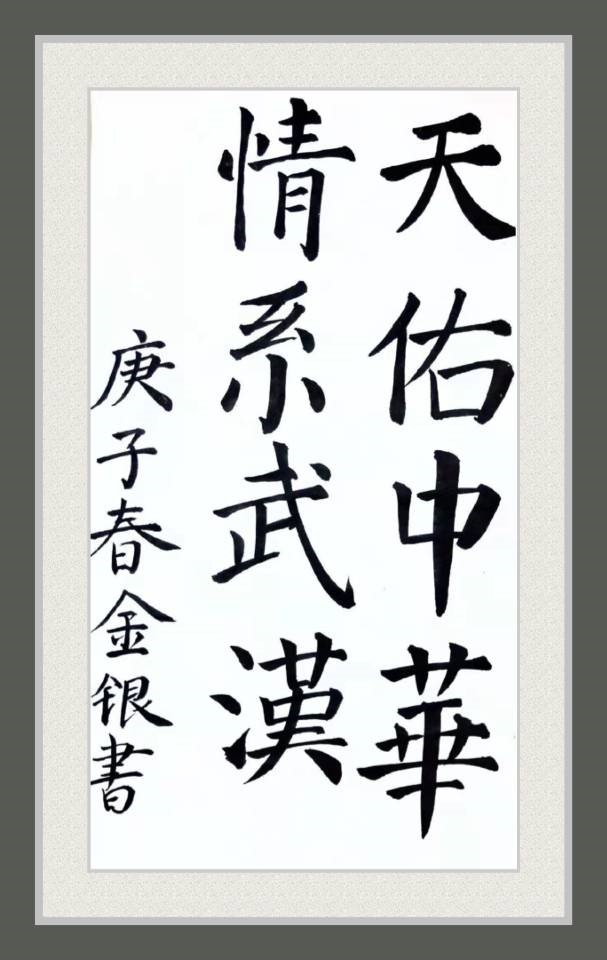 天佑中華
情系武漢
庚子春金银書